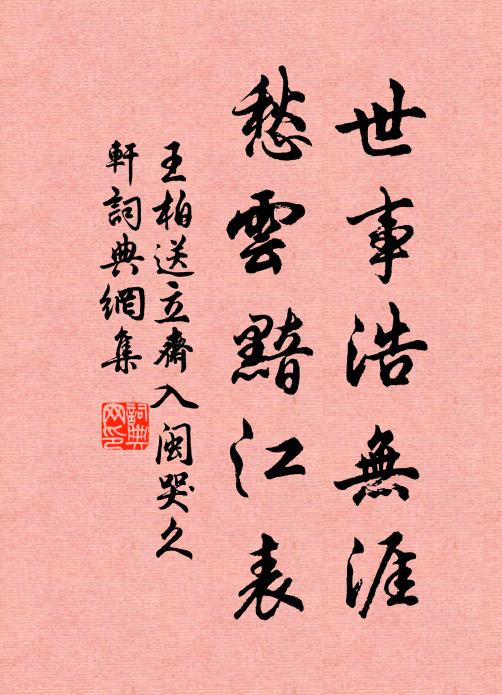 世事浩無涯
愁雲黯江表
王柏送立齋入閩哭久
軒詞典網集
詞典网印